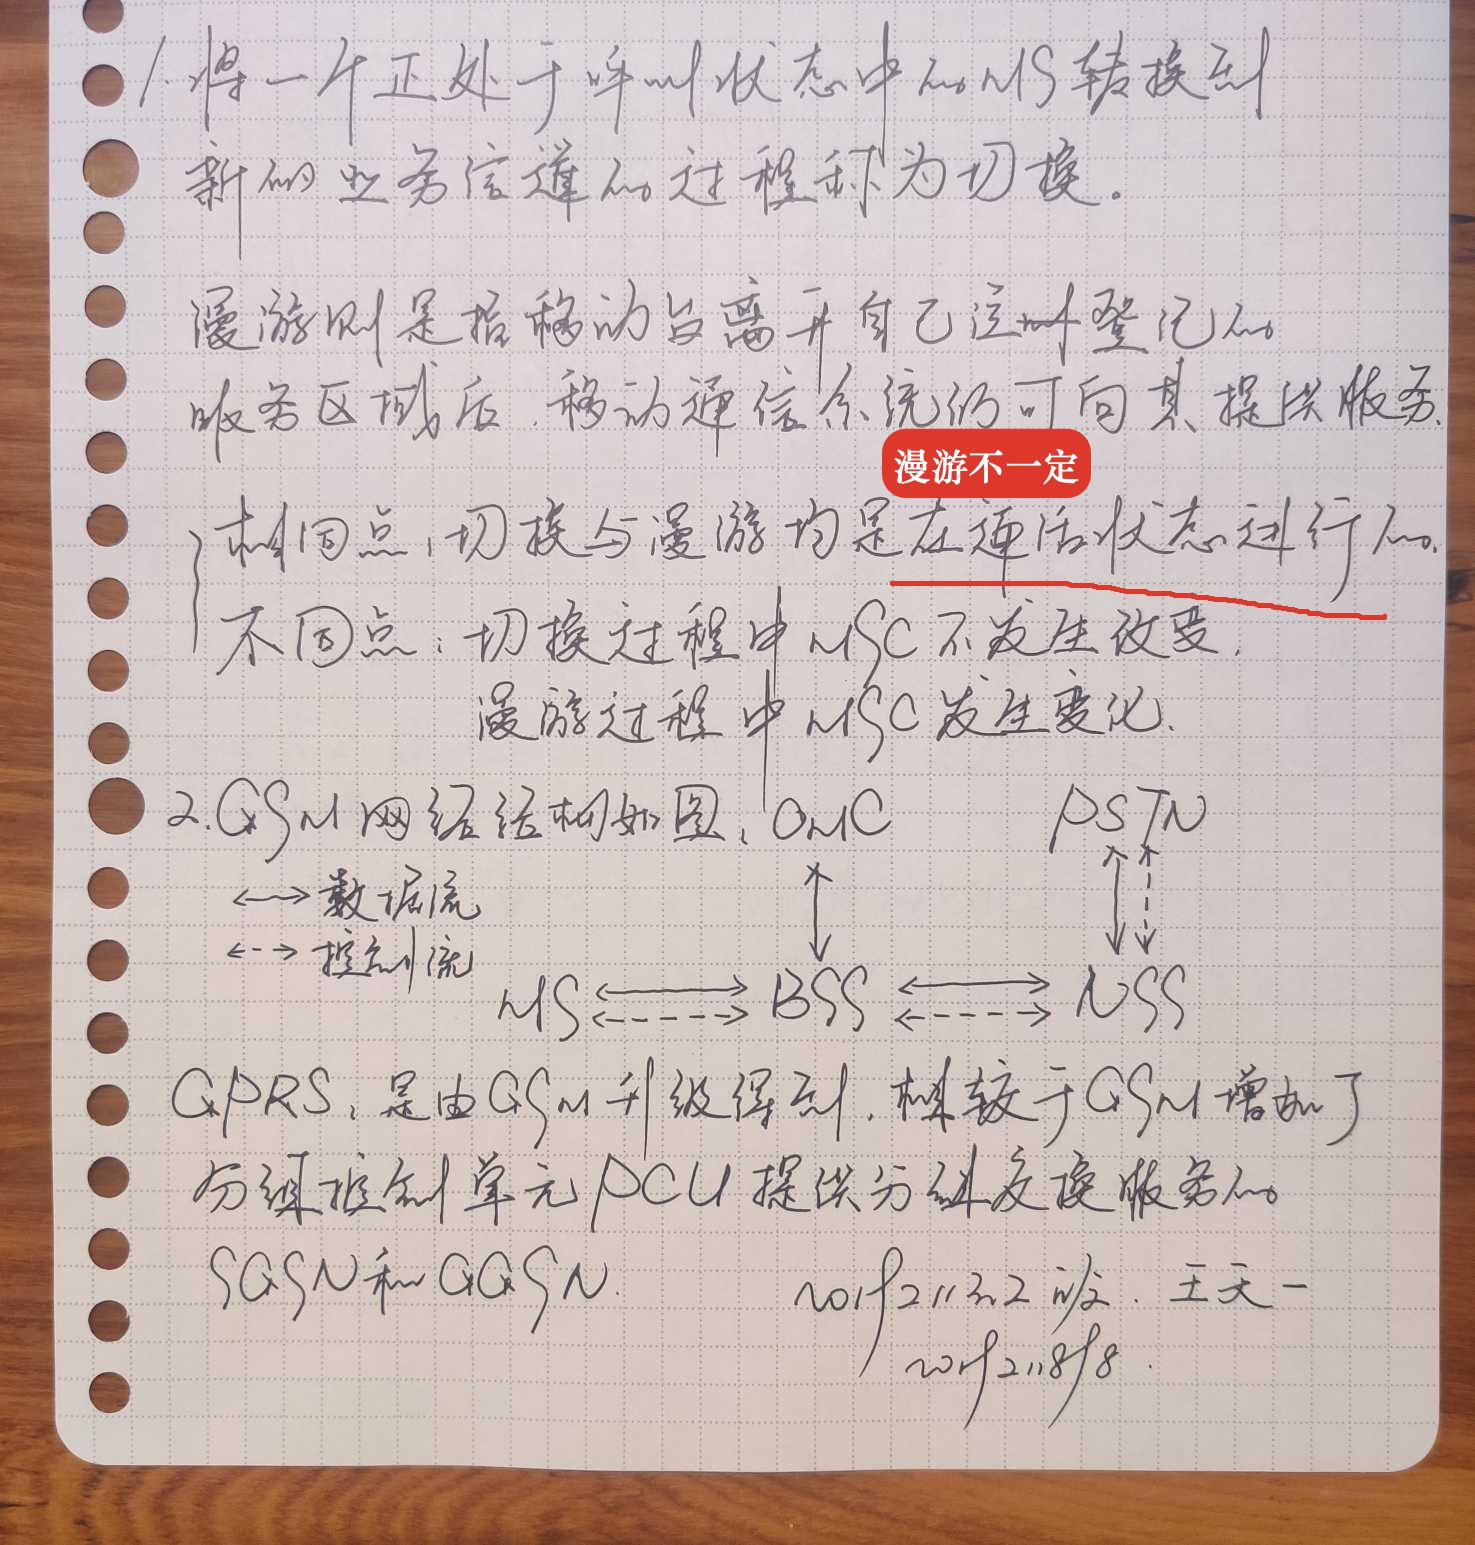 1.将一个正处于呼叫状态中的MS转换到
新的业务信道的过程称为切换。
漫游则是指移动台离开自己注册登记的
服务区域后,移动通信系统仍可向其提供服务.
漫游不一定
相同点:切换与漫游均是在通话状态进行的.
不同点:切换过程中MSC不发生改变.
漫游过程中MSC发生变化.
2.GSM网络结构如图: OMC PSTN
数据流
控制流
MS BSS NSS
GPRS:是由GSM升级得到.相较于GSM增加了
分组控制单元PCU提供分组交换服务的
SGSN和GGSN.
班. 王天一